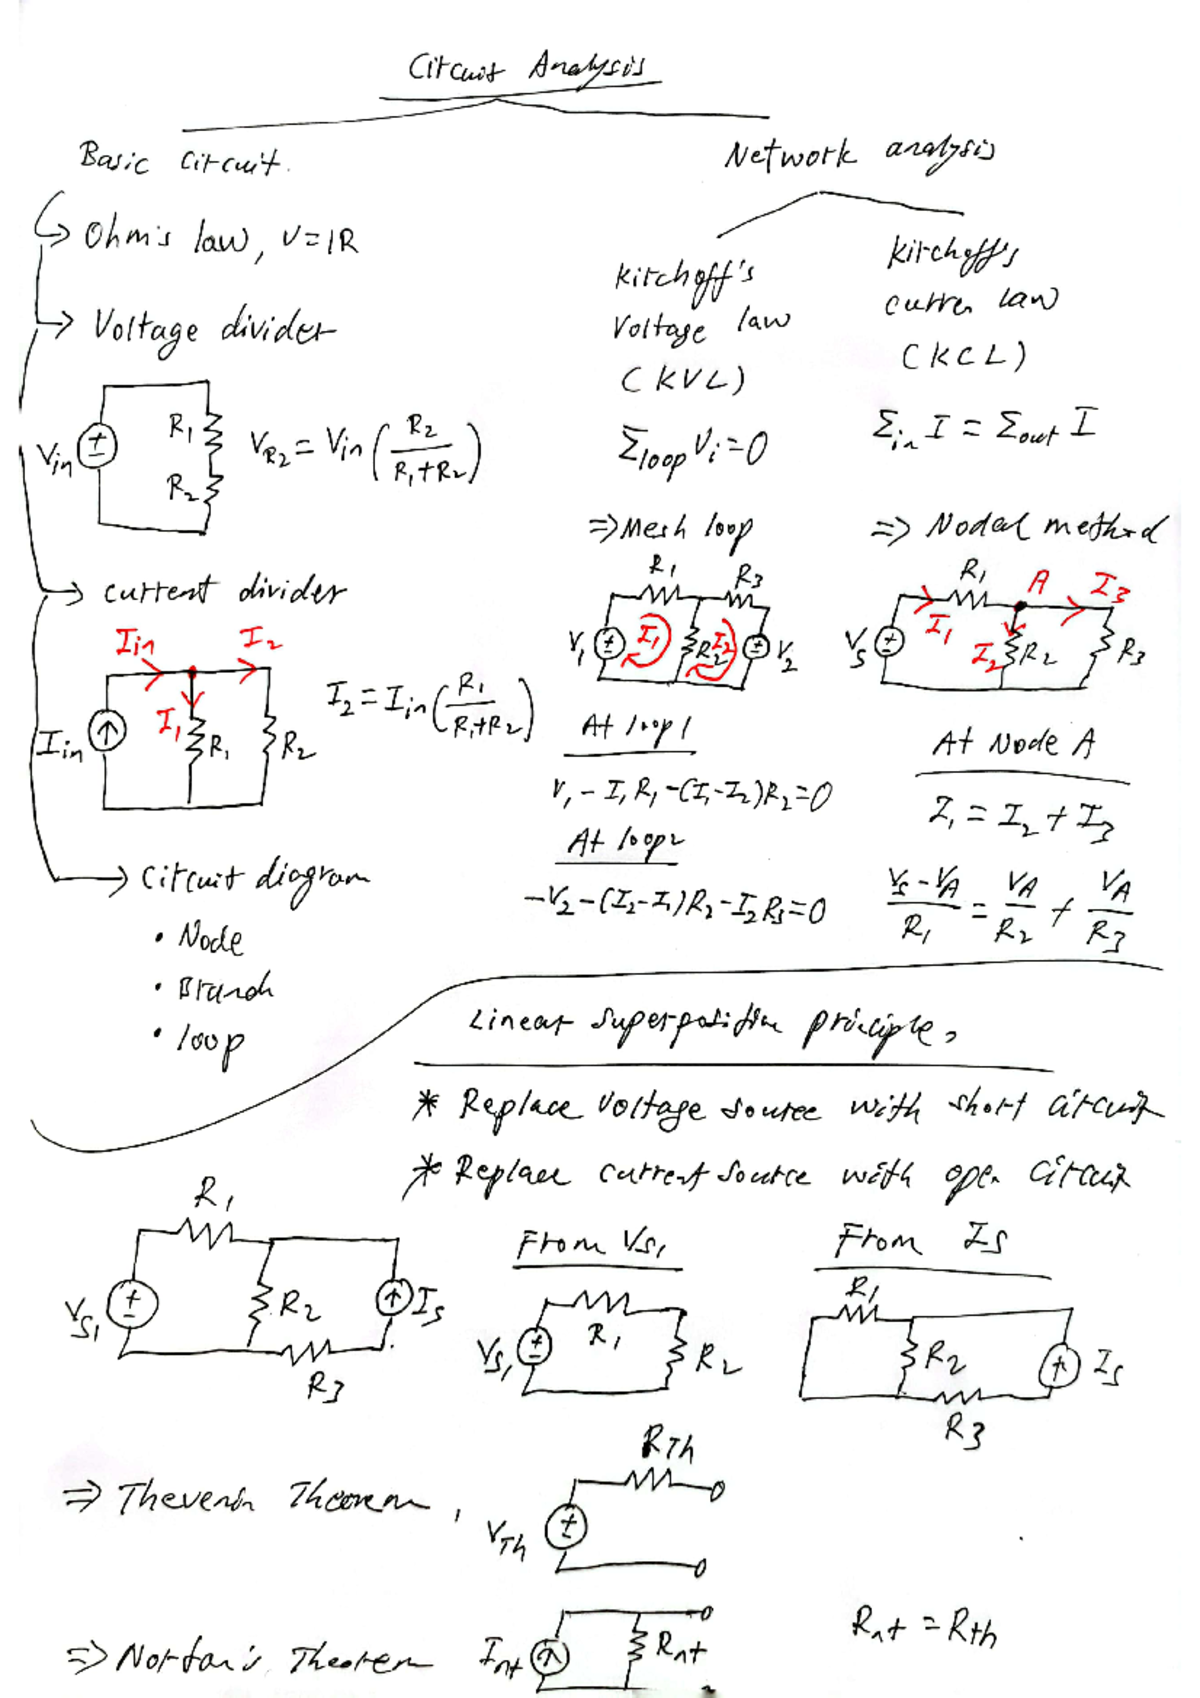 Circuit Analysis
Basic circuit.
Ohm's law, V=IR
Voltage divider
Vin
R1
R2
VR2 = Vin (R2 / R1+R2)
current divider
Iin
I2
I1
Iin
R1
R2
I2 = Iin (R1 / R1+R2)
Circuit diagram
• Node
• Branch
• loop
Network analysis
Kirchoff's
Voltage law
(KVL)
Σloop Vi = 0
⇒ Mesh loop
R1
R3
V1
I1
R2
I2
V2
At loop 1
V1 - I1 R1 - (I1 - I2) R2 = 0
At loop 2
-V2 - (I2 - I1) R2 - I2 R3 = 0
Kirchoff's
curren law
(KCL)
Σin I = Σout I
⇒ Nodal method
R1
A
I3
Vs
I1
I2
R2
R3
At Node A
I1 = I2 + I3
Vs - VA / R1 = VA / R2 + VA / R3
Linear superposition principle,
* Replace voltage source with short circuit
* Replace current source with open circuit
R1
Vs1
R2
Is
R3
From Vs1
Vs1
R1
R2
From Is
R1
R2
Is
R3
⇒ Thevenin Theorem,
RTh
VTh
⇒ Nortan's Theorem
Int
Rnt
Rnt = Rth